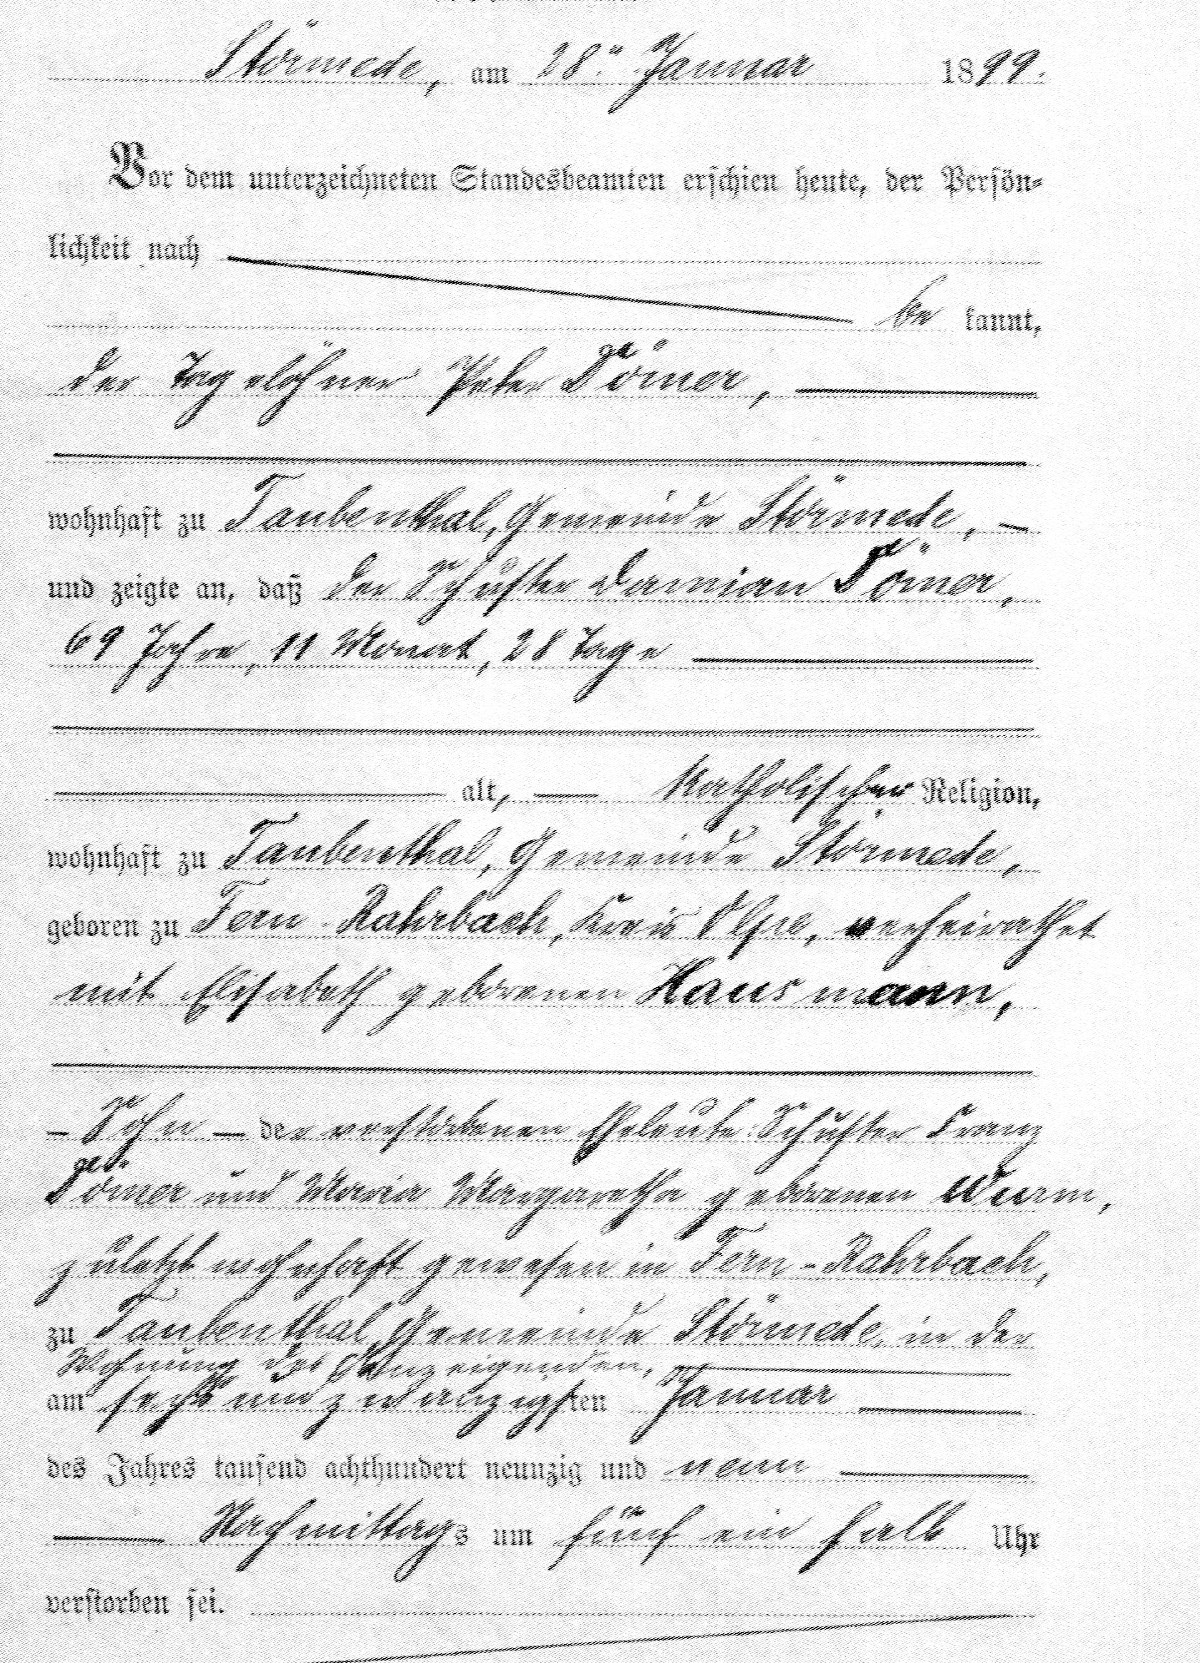 Störmede, am 28." Januar 1899.
Vor dem unterzeichneten Standesbeamten erschien heute, der Persön-
lichkeit nach
be kannt,
der Tagelöhner Peter Dömer,
wohnhaft zu Taubenthal, Gemeinde Störmede,
und zeigte an, daß der Schuster Damian Dömer,
69 Jahre, 11 Monat, 28 Tage
alt, katholischer Religion,
wohnhaft zu Taubenthal, Gemeinde Störmede,
geboren zu Fern-Rahrbach, Kreis Olpe, verheirathet
mit Elisabeth geborenen Hausmann,
Sohn der verstorbenen Eheleute Schuster Franz
Dömer und Maria Margaretha geborenen Wurm,
zuletzt wohnhaft gewesen in Fern-Rahrbach,
zu Taubenthal, Gemeinde Störmede, in der
Wohnung des Anzeigenden,
am sechsundzwanzigsten Januar
des Jahres tausend achthundert neunzig und neun
Nachmittags um fünf ein halb Uhr
verstorben sei.